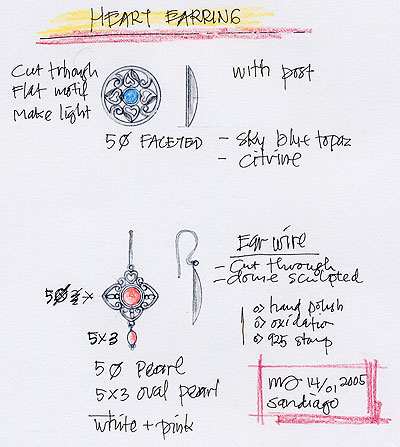 HEART EARRING
Cut trhough
Flat motif
Make light
with post
5Ø FACETED
- Sky blue topaz
- Citrine
Ear wire
- Cut through
- dome sculpted
5Ø
5X3
o> hand polish
o> oxidation
o> 925 stamp
5Ø Pearl
5X3 oval pearl
white + pink
14/01 2005
sandiago